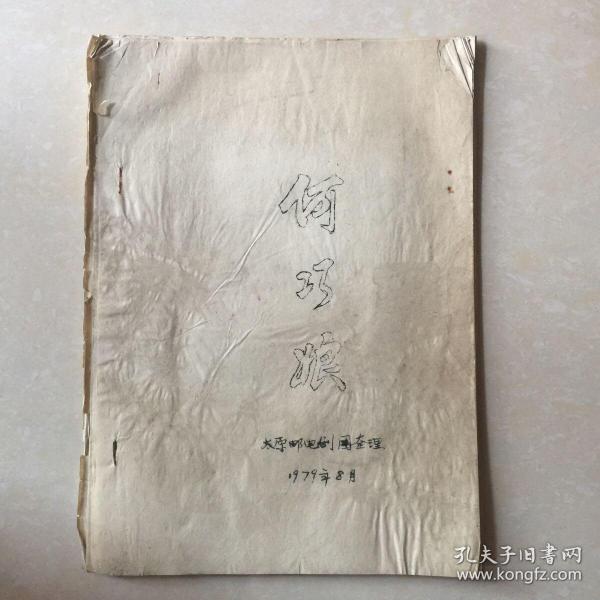 何巧娘
太原邮电剧团整理
1979年8月
孔夫子旧書网
www.kongfz.com